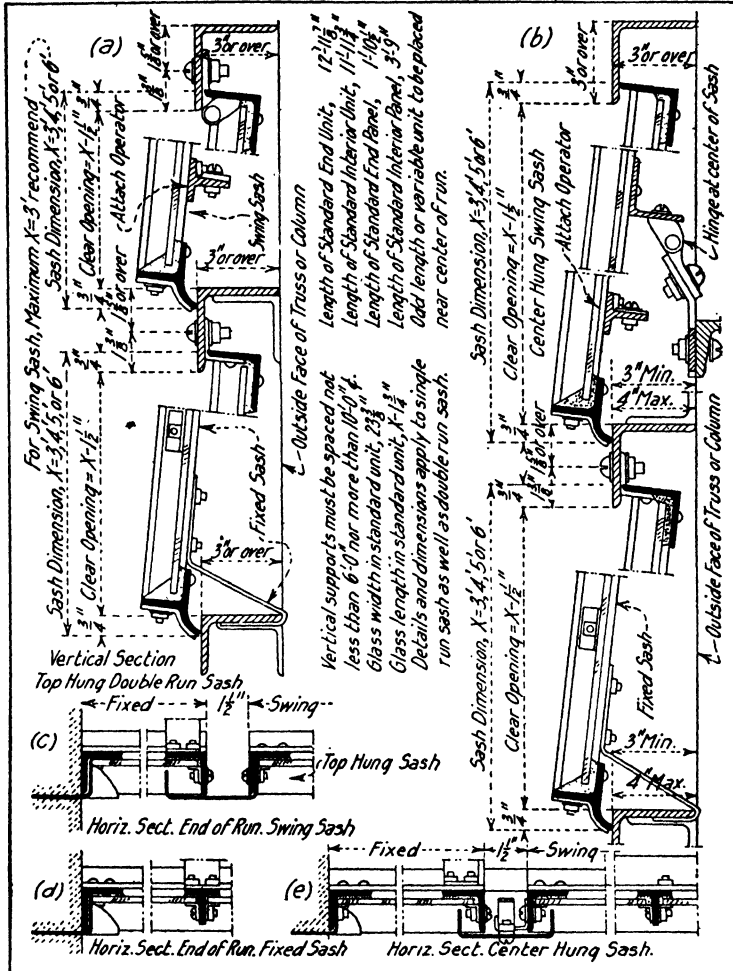 (a)
3"or over
1 1/8" or over
3"or over
1 1/8"
3/4"
For Swing Sash, Maximum X=3' recommend
Sash Dimension, X=3,'4,'5,'or 6'
Clear Opening = X-1 1/2"
Attach Operator
Swing Sash
3"or over
3/4"
1 1/8 or over
1 1/8"
3/4"
Sash Dimension, X=3,'4,'5,'or 6'
Clear Opening = X-1 1/2"
Fixed Sash
3"or over
3/4"
Outside Face of Truss or Column
Vertical Section
Top Hung Double Run Sash
Length of Standard End Unit,
Length of Standard Interior Unit, 11'-11 1/4"
Length of Standard End Panel, 1'-10 1/2"
Length of Standard Interior Panel, 3'-9"
Odd length or variable unit to be placed
near center of run.
Vertical supports must be spaced not
less than 6'-0" nor more than 10'-0"
Glass width in standard unit, 23 3/8"
Glass length in standard unit, X-1 3/4"
Details and dimensions apply to single
run sash as well as double run sash.
(b)
3"or over
3"or over
3/4"
Sash Dimension, X=3,'4,'5'or 6'
Clear Opening = X-1 1/2"
Center Hung Swing Sash
Attach Operator
Hinge at center of Sash
3" Min.
4" Max.
3/4"
1 1/8 or over
3/4"
1 1/8"
Sash Dimension, X=3,'4,'5'or 6'
Clear Opening = X-1 1/2"
Fixed Sash
Outside Face of Truss or Column
3" Min.
4" Max.
3/4"
(c)
Fixed
1 1/2"
Swing
Top Hung Sash
Horiz. Sect. End of Run. Swing Sash
(d)
Horiz. Sect. End of Run. Fixed Sash
(e)
Fixed
1 1/2"
Swing
Horiz. Sect. Center Hung Sash.